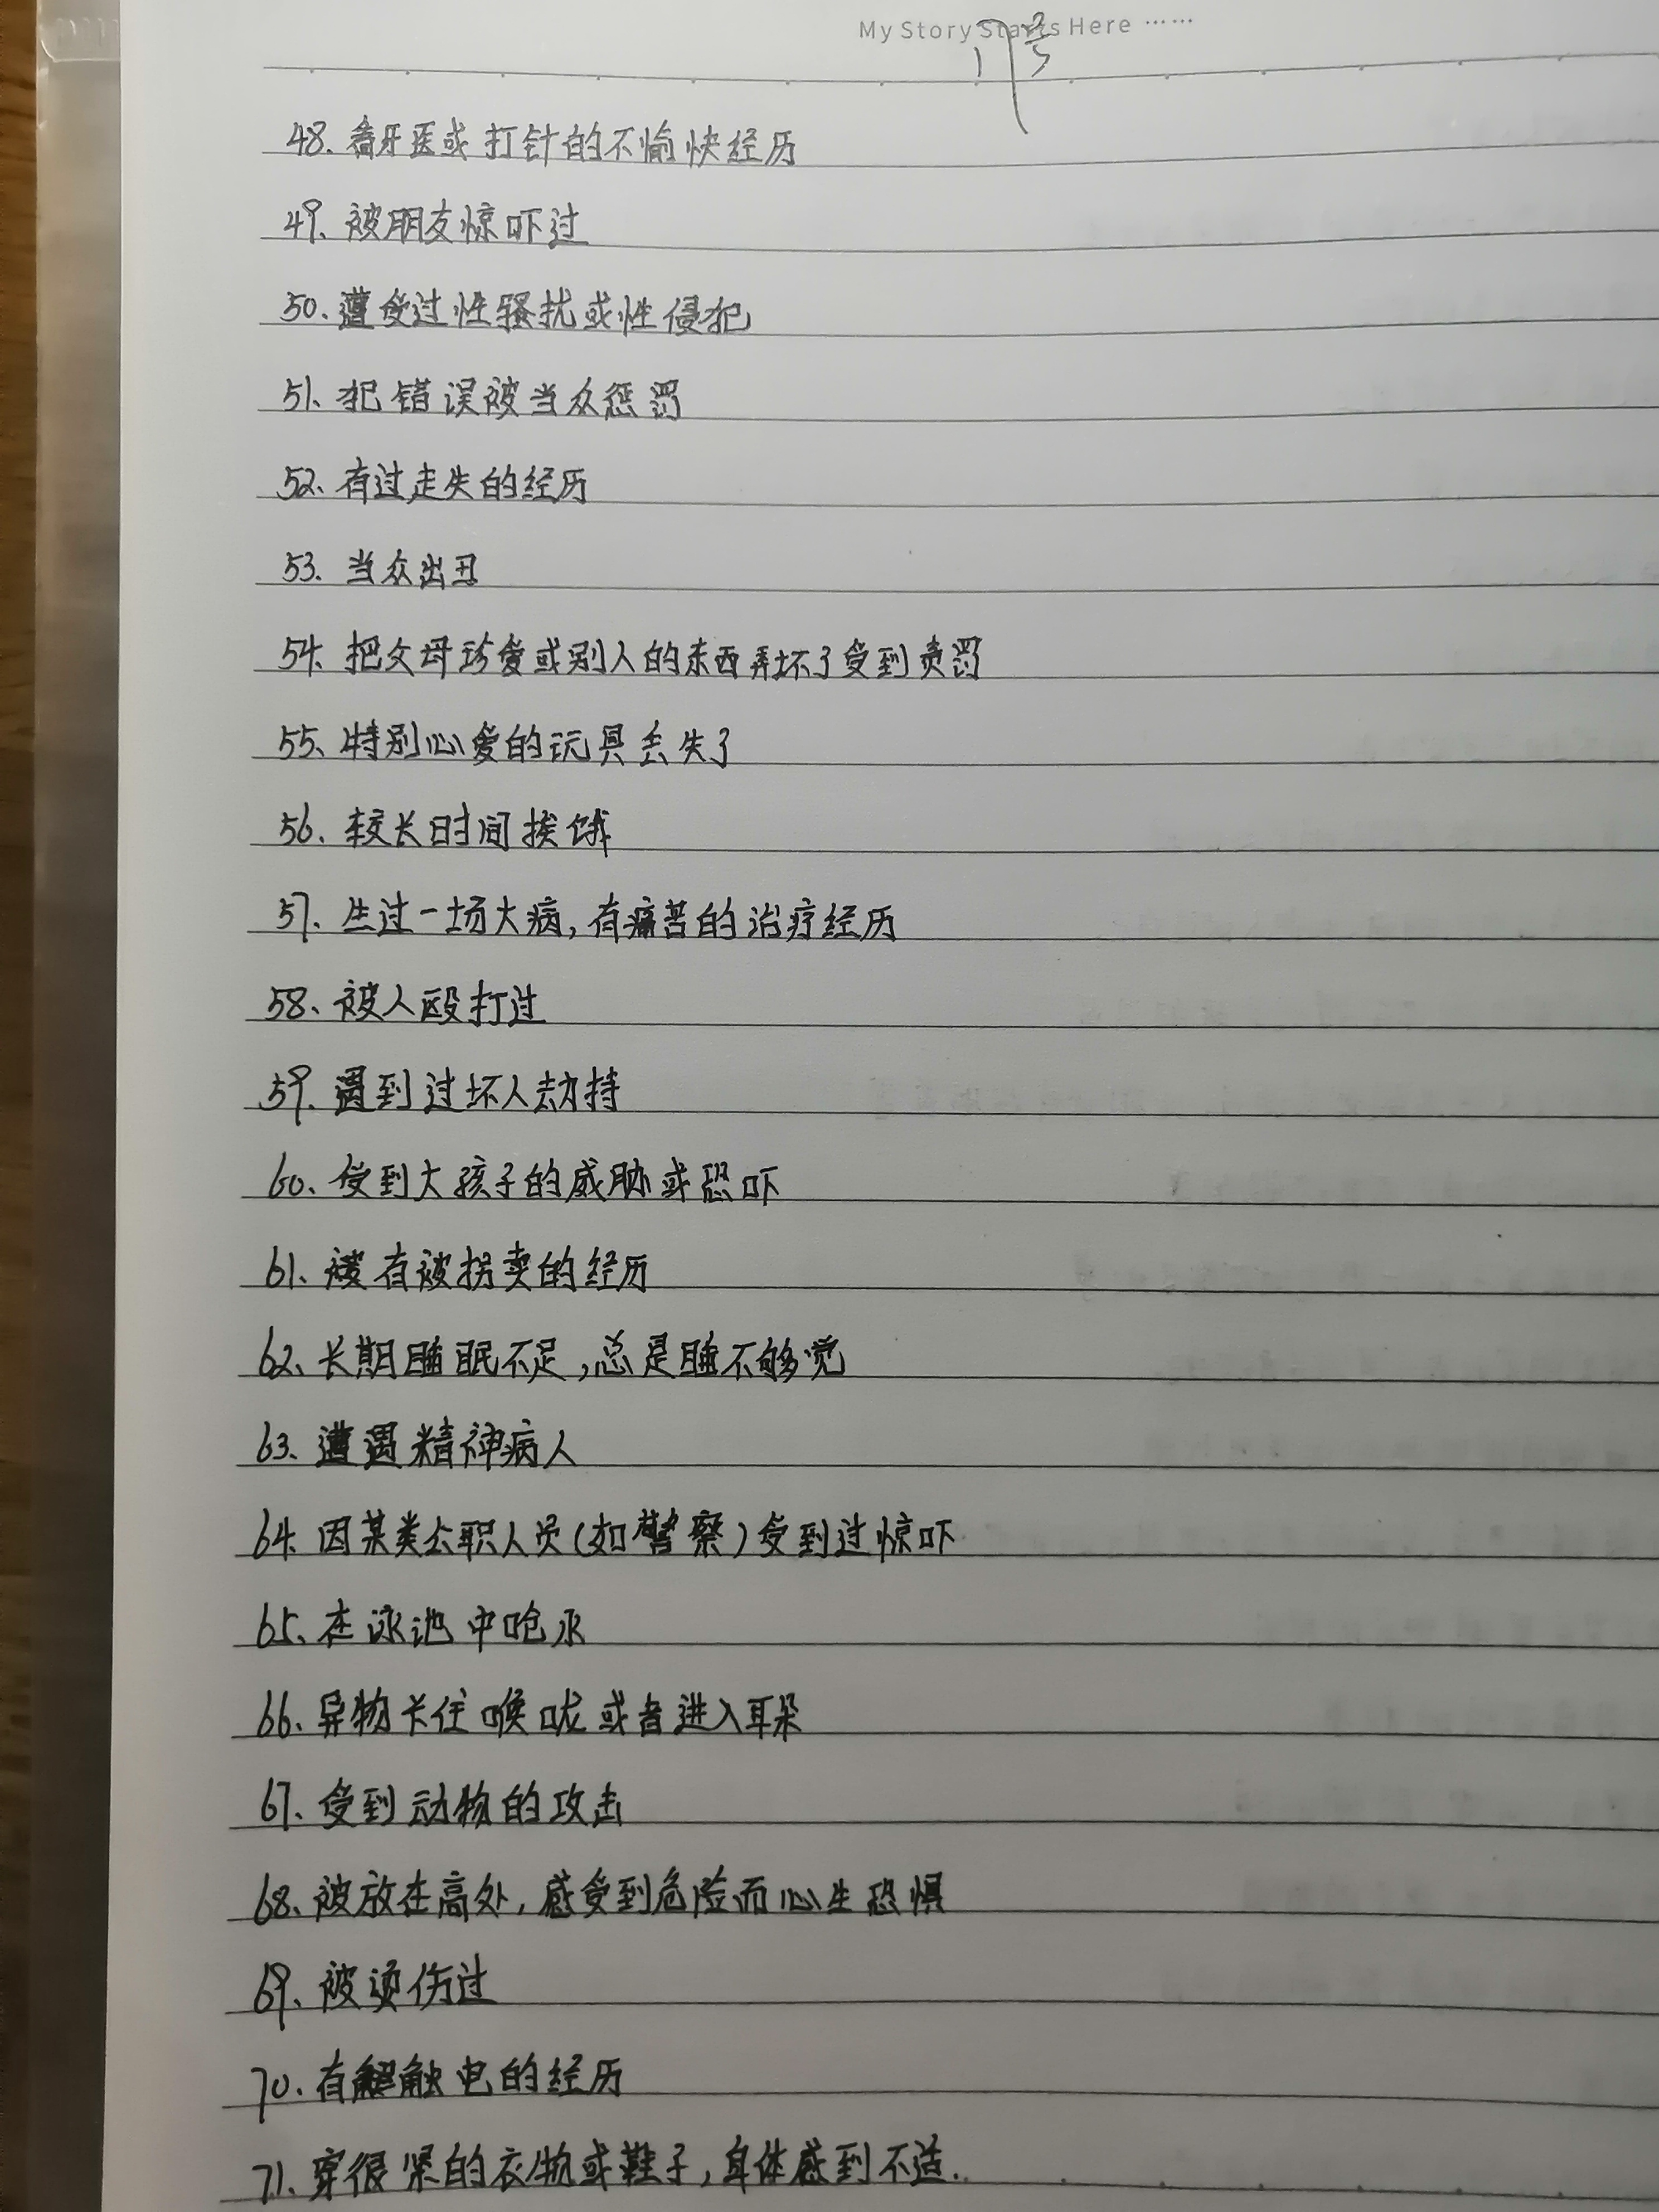 My Story Starts Here ……
48. 看牙医或打针的不愉快经历
49. 被朋友惊吓过
50. 遭受过性骚扰或性侵犯
51. 犯错误被当众惩罚
52. 有过走失的经历
53. 当众出丑
54. 把父母珍爱或别人的东西弄坏了受到责罚
55. 特别心爱的玩具丢失了
56. 较长时间挨饿
57. 生过一场大病,有痛苦的治疗经历
58. 被人殴打过
59. 遇到过坏人劫持
60. 受到大孩子的威胁或恐吓
61. 有被拐卖的经历
62. 长期睡眠不足,总是睡不够觉
63. 遭遇精神病人
64. 因某类公职人员(如警察)受到过惊吓
65. 在泳池中呛水
66. 异物卡住喉咙或者进入耳朵
67. 受到动物的攻击
68. 被放在高处,感受到危险而心生恐惧
69. 被烫伤过
70. 有触电的经历
71. 穿很紧的衣物或鞋子,身体感到不适.